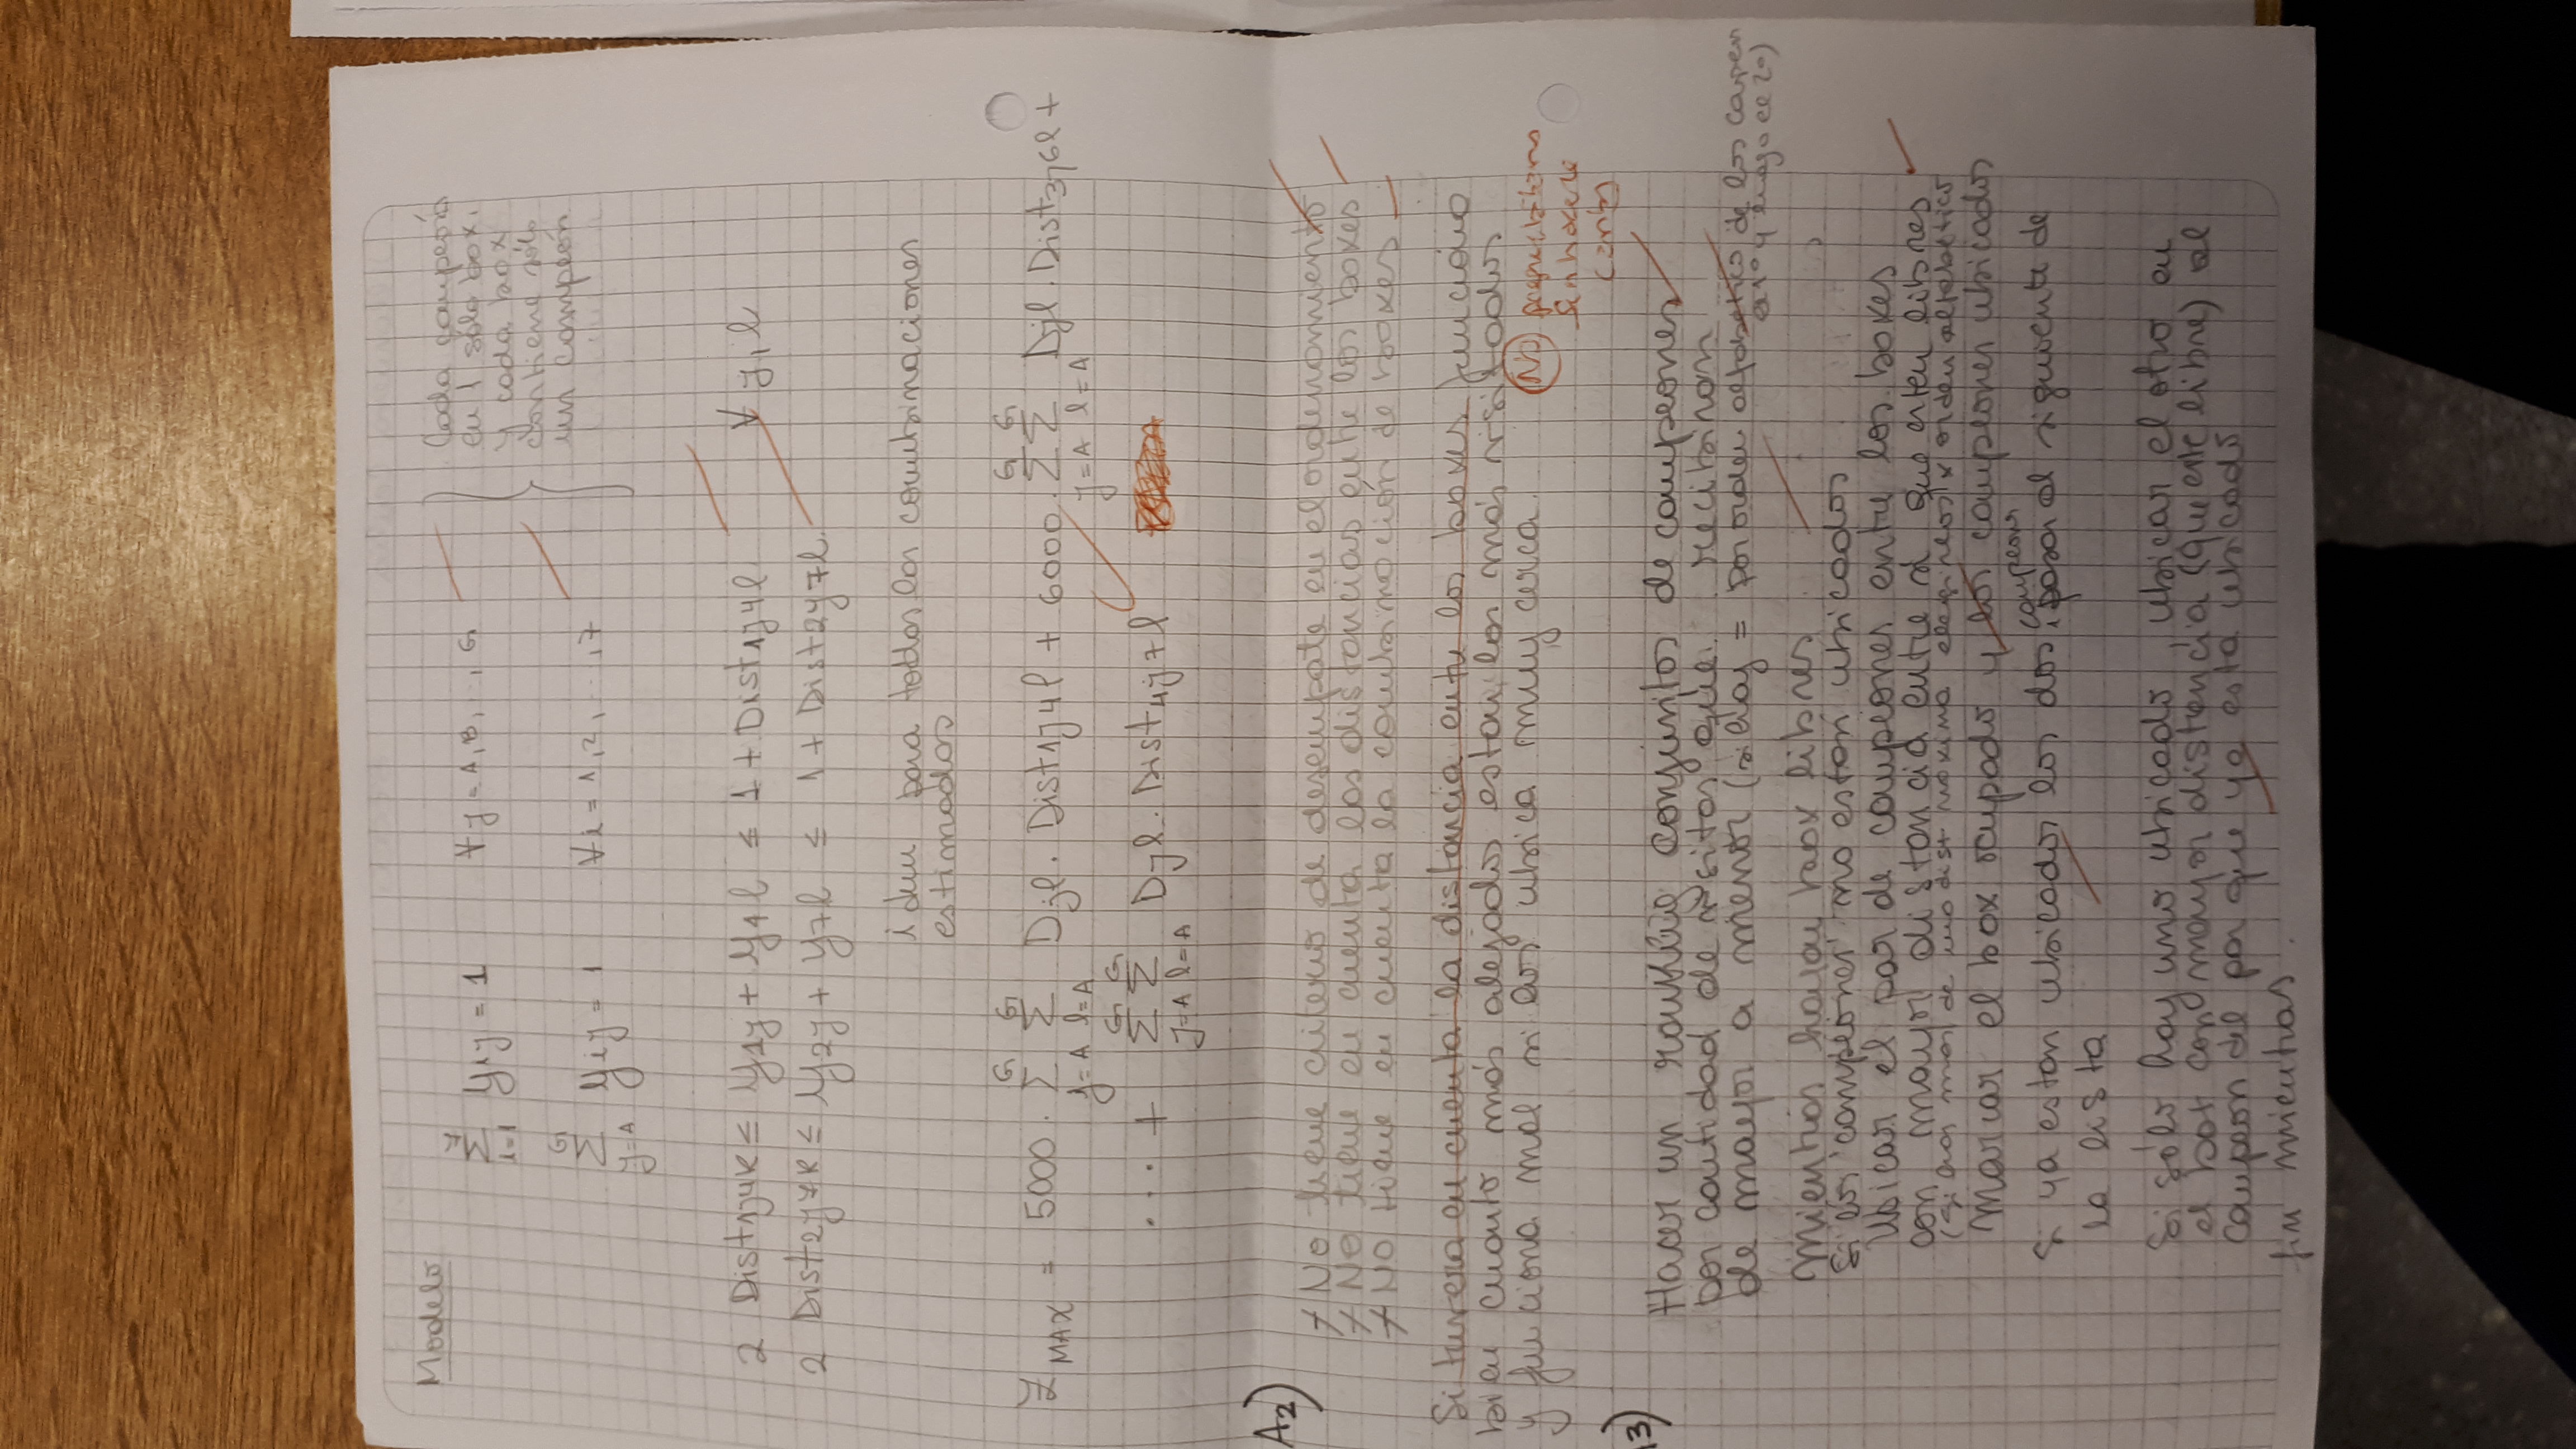 Modelo
7 Σ i=1 Yij = 1 ∀ j = A, B, .., G
G Σ j=A Yij = 1 ∀ i = 1, 2, ..., 7
Cada campeón
en 1 sólo box,
y cada box
contiene sólo
un campeón
2 Dist1j4k ≤ Y1j + Y4l ≤ 1 + Dist1j4l ∀ j, l
2 Dist2j7k ≤ Y2j + Y7l ≤ 1 + Dist2j7l
idem para todas las combinaciones
estimadas
Z MAX = 5000 . G Σ j=A G Σ l=A Djl . Dist1j4l + 6000 . G Σ j=A G Σ l=A Djl . Dist3j6l +
.... + G Σ j=A G Σ l=A Djl . Dist4j7l
A2)
+ No tiene criterio de desempate en el ordenamiento
+ No tiene en cuenta las distancias entre los boxes
+ No tiene en cuenta la combinación de boxes
Si tuviera en cuenta la distancia entre los boxes funciona
bien cuanto más alejados estan los más visitados
y funciona mal si los ubica muy cerca.
NO
sin hacerle
13)
Hacer un ranking conjuntos de campeones
por cantidad de visitas que recibiran
de mayor a menor (si hay = por orden alfabético de los campeon
el 1º y luego el 2º)
Mientras hayan box libres
Si los campeones no estan ubicados
Ubicar el par de campeones entre los boxes
con mayor distancia entre si que esten libres
(si hay mas de una dist maxima elegirlos x orden alfabetico
Marcar el box ocupado y los campeones ubicados
Si ya estan ubicados los dos campeones pasar al siguiente de
la lista
Si sólo hay uno ubicado, ubicar el otro en
el box con mayor distancia (que este libre) al
campeon del par que ya esta ubicado
fin mientras.